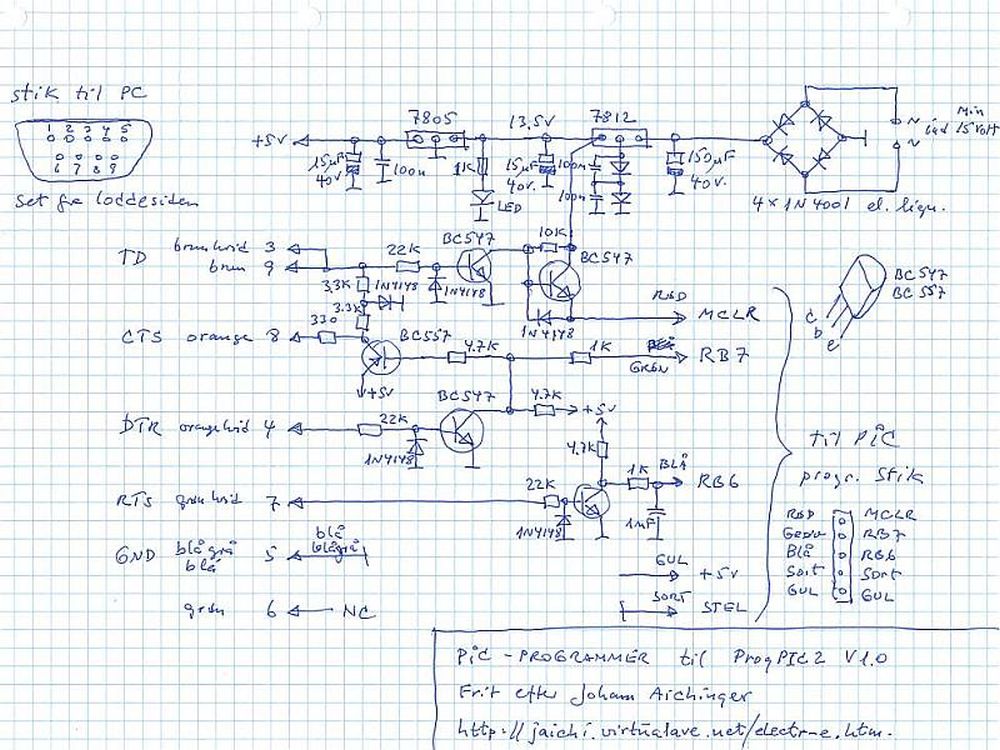 stik til PC
1 2 3 4 5
6 7 8 9
Set fra loddesiden
+5V
15µF
40V
100n
7805
1K
LED
13.5V
15µF
40V.
7812
100n
100n
150µF
40V.
Min
ind 15 Volt
~
~
4 x 1N4001 el. lign.
TD
brun hvid 3
brun 9
22K
1N4148
BC547
10K
BC547
1N4148
RØD
MCLR
3.3K
1N4148
3.3K
330
CTS orange 8
BC557
+5V
4.7K
1K
GRØN
RB7
BC547
BC557
c
b
e
DTR orange hvid 4
22K
1N4148
BC547
4.7K
+5V
4.7K
1K
BLÅ
RB6
RTS grøn hvid 7
22K
1N4148
1nF
GND blågrå 5
blå
blå
blågrå
grøn 6
NC
GUL
+5V
SORT
STEL
til PIC
progr. Stik
RØD MCLR
Grøn RB7
Blå RB6
Sort Sort
GUL GUL
PIC-PROGRAMMER til ProgPIC2 V1.0
Frit efter Joham Aichinger
http://jaichi.virtualave.net/electr-e.htm.